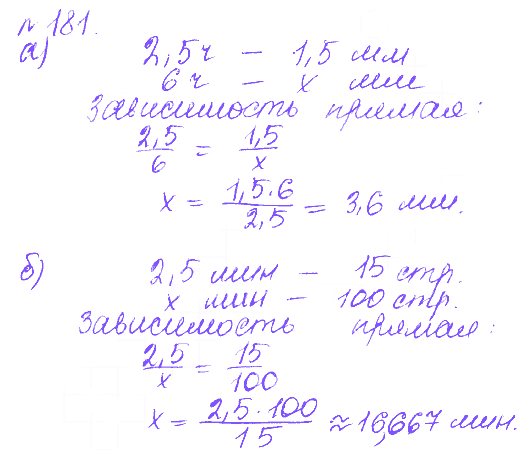 № 181.
а) 2,5ч – 1,5 мм
6ч – x мм
Зависимость прямая:
2,5/6 = 1,5/x
x = 1,5·6/2,5 = 3,6 мм.
б) 2,5 мин – 15 стр.
x мин – 100 стр.
Зависимость прямая:
2,5/x = 15/100
x = 2,5·100/15 ≈ 16,667 мин.